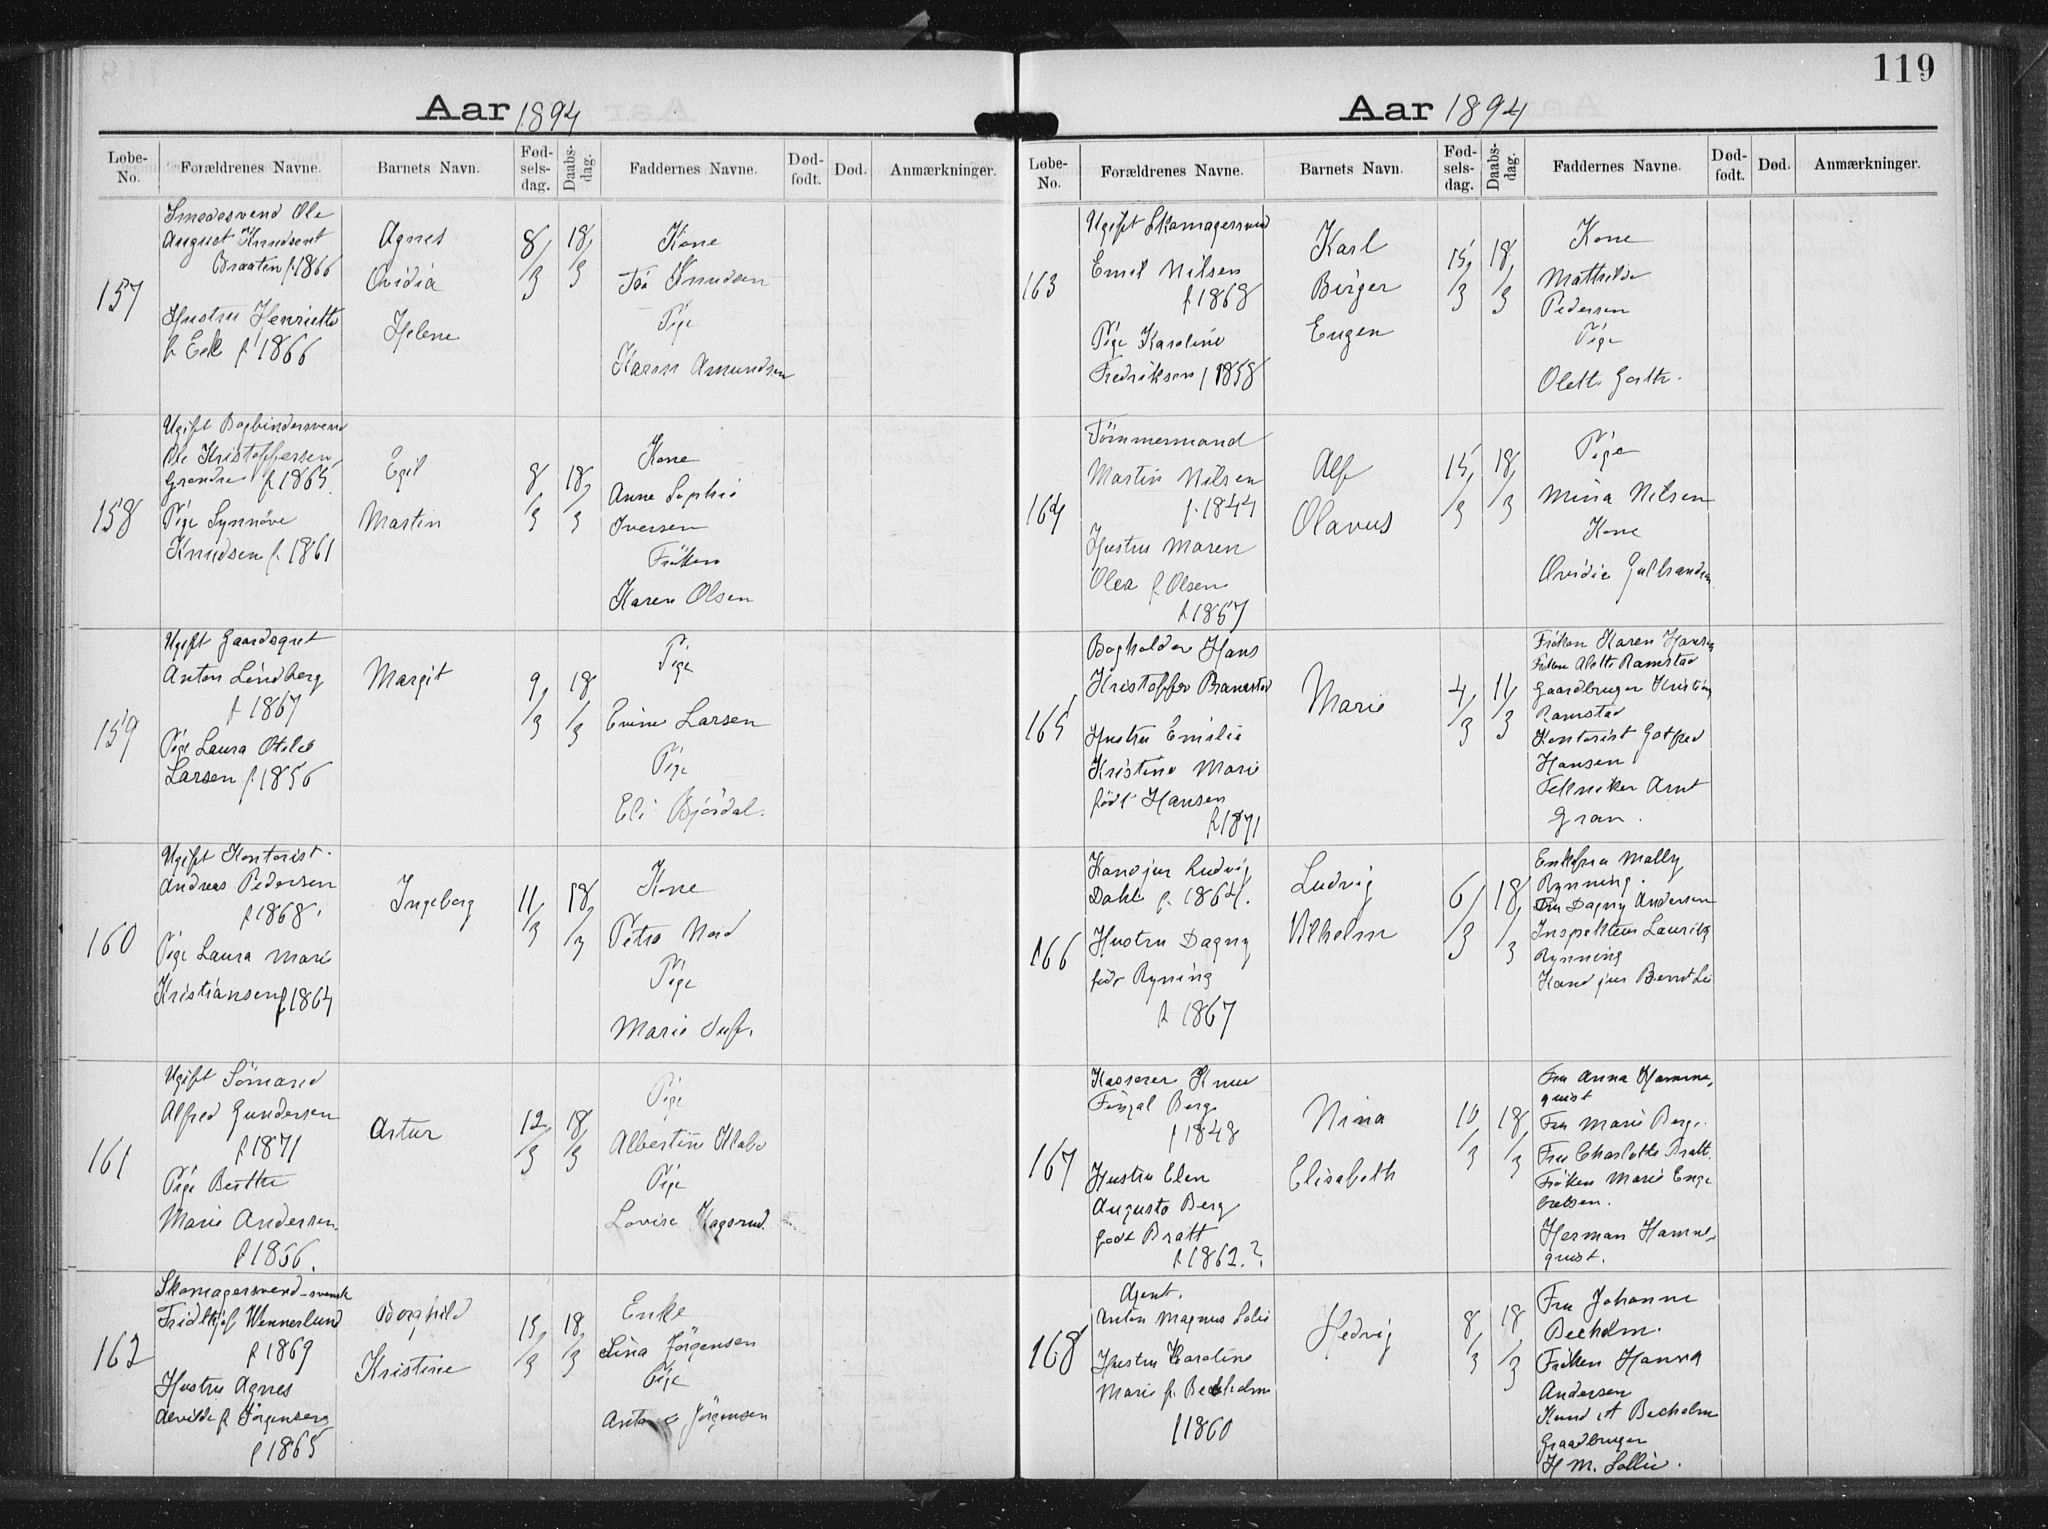 Aar 1894
Løbe-No.
Forældrenes Navne.
Barnets Navn.
Fødselsdag.
Daabsdag.
Faddernes Navne.
Dødfødt.
Død.
Anmærkninger.
157
Smedesvend Ole
August Knudsent
Braaten f. 1866
Hustru Henriette
f Eek f 1866
Agnes
Ovidia
Helene
8/3
18/3
Kone
Knudsen
Pige
Karen Amundsen
158
Ugift Bogbindersvend
Ole Kristoffersen
f. 1865
Pige Synnöve
Knudsen f. 1861
Egil
Martin
8/3
18/3
Kone
Anne Sophie
Iversen
Fröken
Karen Olsen
159
Ugift Gaardsgut
Anton Lindberg
f 1867
Pige Laura
Larsen f. 1856
Margit
9/3
18/3
Pige
Evine Larsen
Pige
Eli Björdal.
160
Ugift Kontorist.
Andreas Pedersen
f 1868.
Pige Laura Marie
Kristiansen f. 1864
Ingeborg
11/3
18/3
Kone
Petra
Pige
Marie
161
Ugift Sömand
Alfred Gundersen
f 1871
Pige Berthe
Marie Andersen
f 1856.
Artur
12/3
18/3
Pige
Albertine
Pige
Lovise
162
Skomagersvend - svensk
Fridthjof Wennerlund
f 1869
Hustru Agnes
Alvilde f Jörgensen
f 1865
Borghild
Kristine
15/3
18/3
Enke
Lina Jörgensen
Pige
Jörgensen
119
Aar 1894
Løbe-No.
Forældrenes Navne.
Barnets Navn.
Fødselsdag.
Daabsdag.
Faddernes Navne.
Dødfødt.
Død.
Anmærkninger.
163
Ugift Skomagersvend
Emil Nilsen
f 1868
Pige Karoline
Fredriksen f 1858
Karl
Birger
Eugen
15/3
18/3
Kone
Mathilde
Pedersen
Pige
Olette
164
Tömmermand
Martin Nilsen
f. 1844
Hustru Maren
Olea f. Olsen
f 1857
Alf
Olavus
15/3
18/3
Pige
Mina Nilsen
Kone
Ovidie Gulbrandsen
165
Bogholder Hans
Kristoffer
Hustru Emilie
Kristine Marie
födt Hansen
f 1871
Marie
4/3
11/3
Fröken Karen Hansen
Fröken Alette Ramstad
Gaardbruger Kristian
Ramstad
Kontorist Gotfred
Hansen
Tekniker Arnt
Gran.
166
Kand jur Ludvig
Dahl f. 1864.
Hustru Dagny
född Ryning
f 1867
Ludvig
Vilhelm
6/3
18/3
Enkefru Mally
Rynning.
Fru Dagny Andersen
Inspekteur Lauritz
Rynning
Kand jur Bernt Lie
167
Kasserer Knud
Fingal Berg
f 1848
Hustru Elen
Augusta Berg
født Bratt
f 1862.?
Nina
Elisabeth
10/3
18/3
Fru Anna Hamme,
quist
Fru Marie Berg.
Fru Charlotte Bratt.
Fröken Marie Enge
bretsen.
Herman Hamme,
quist.
168
Agent.
Anton Magnus Solie
Hustru Karoline
Marie f. Beckholm
f 1860
Hedvig
8/3
18/3
Fru Johanne
Beckholm.
Fröken Hanna
Andersen
Beckholm
Graadbruger
H M. Sollie.